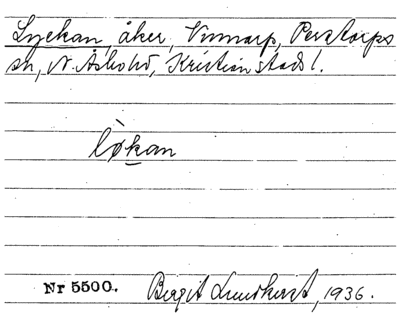 Lyckan, åker, Vinnarp, Perstorps
sn, N. Åsbo hd, Kristianstads l.
l̀økan
Nr 5500. Birgit Lundkvist, 1936.